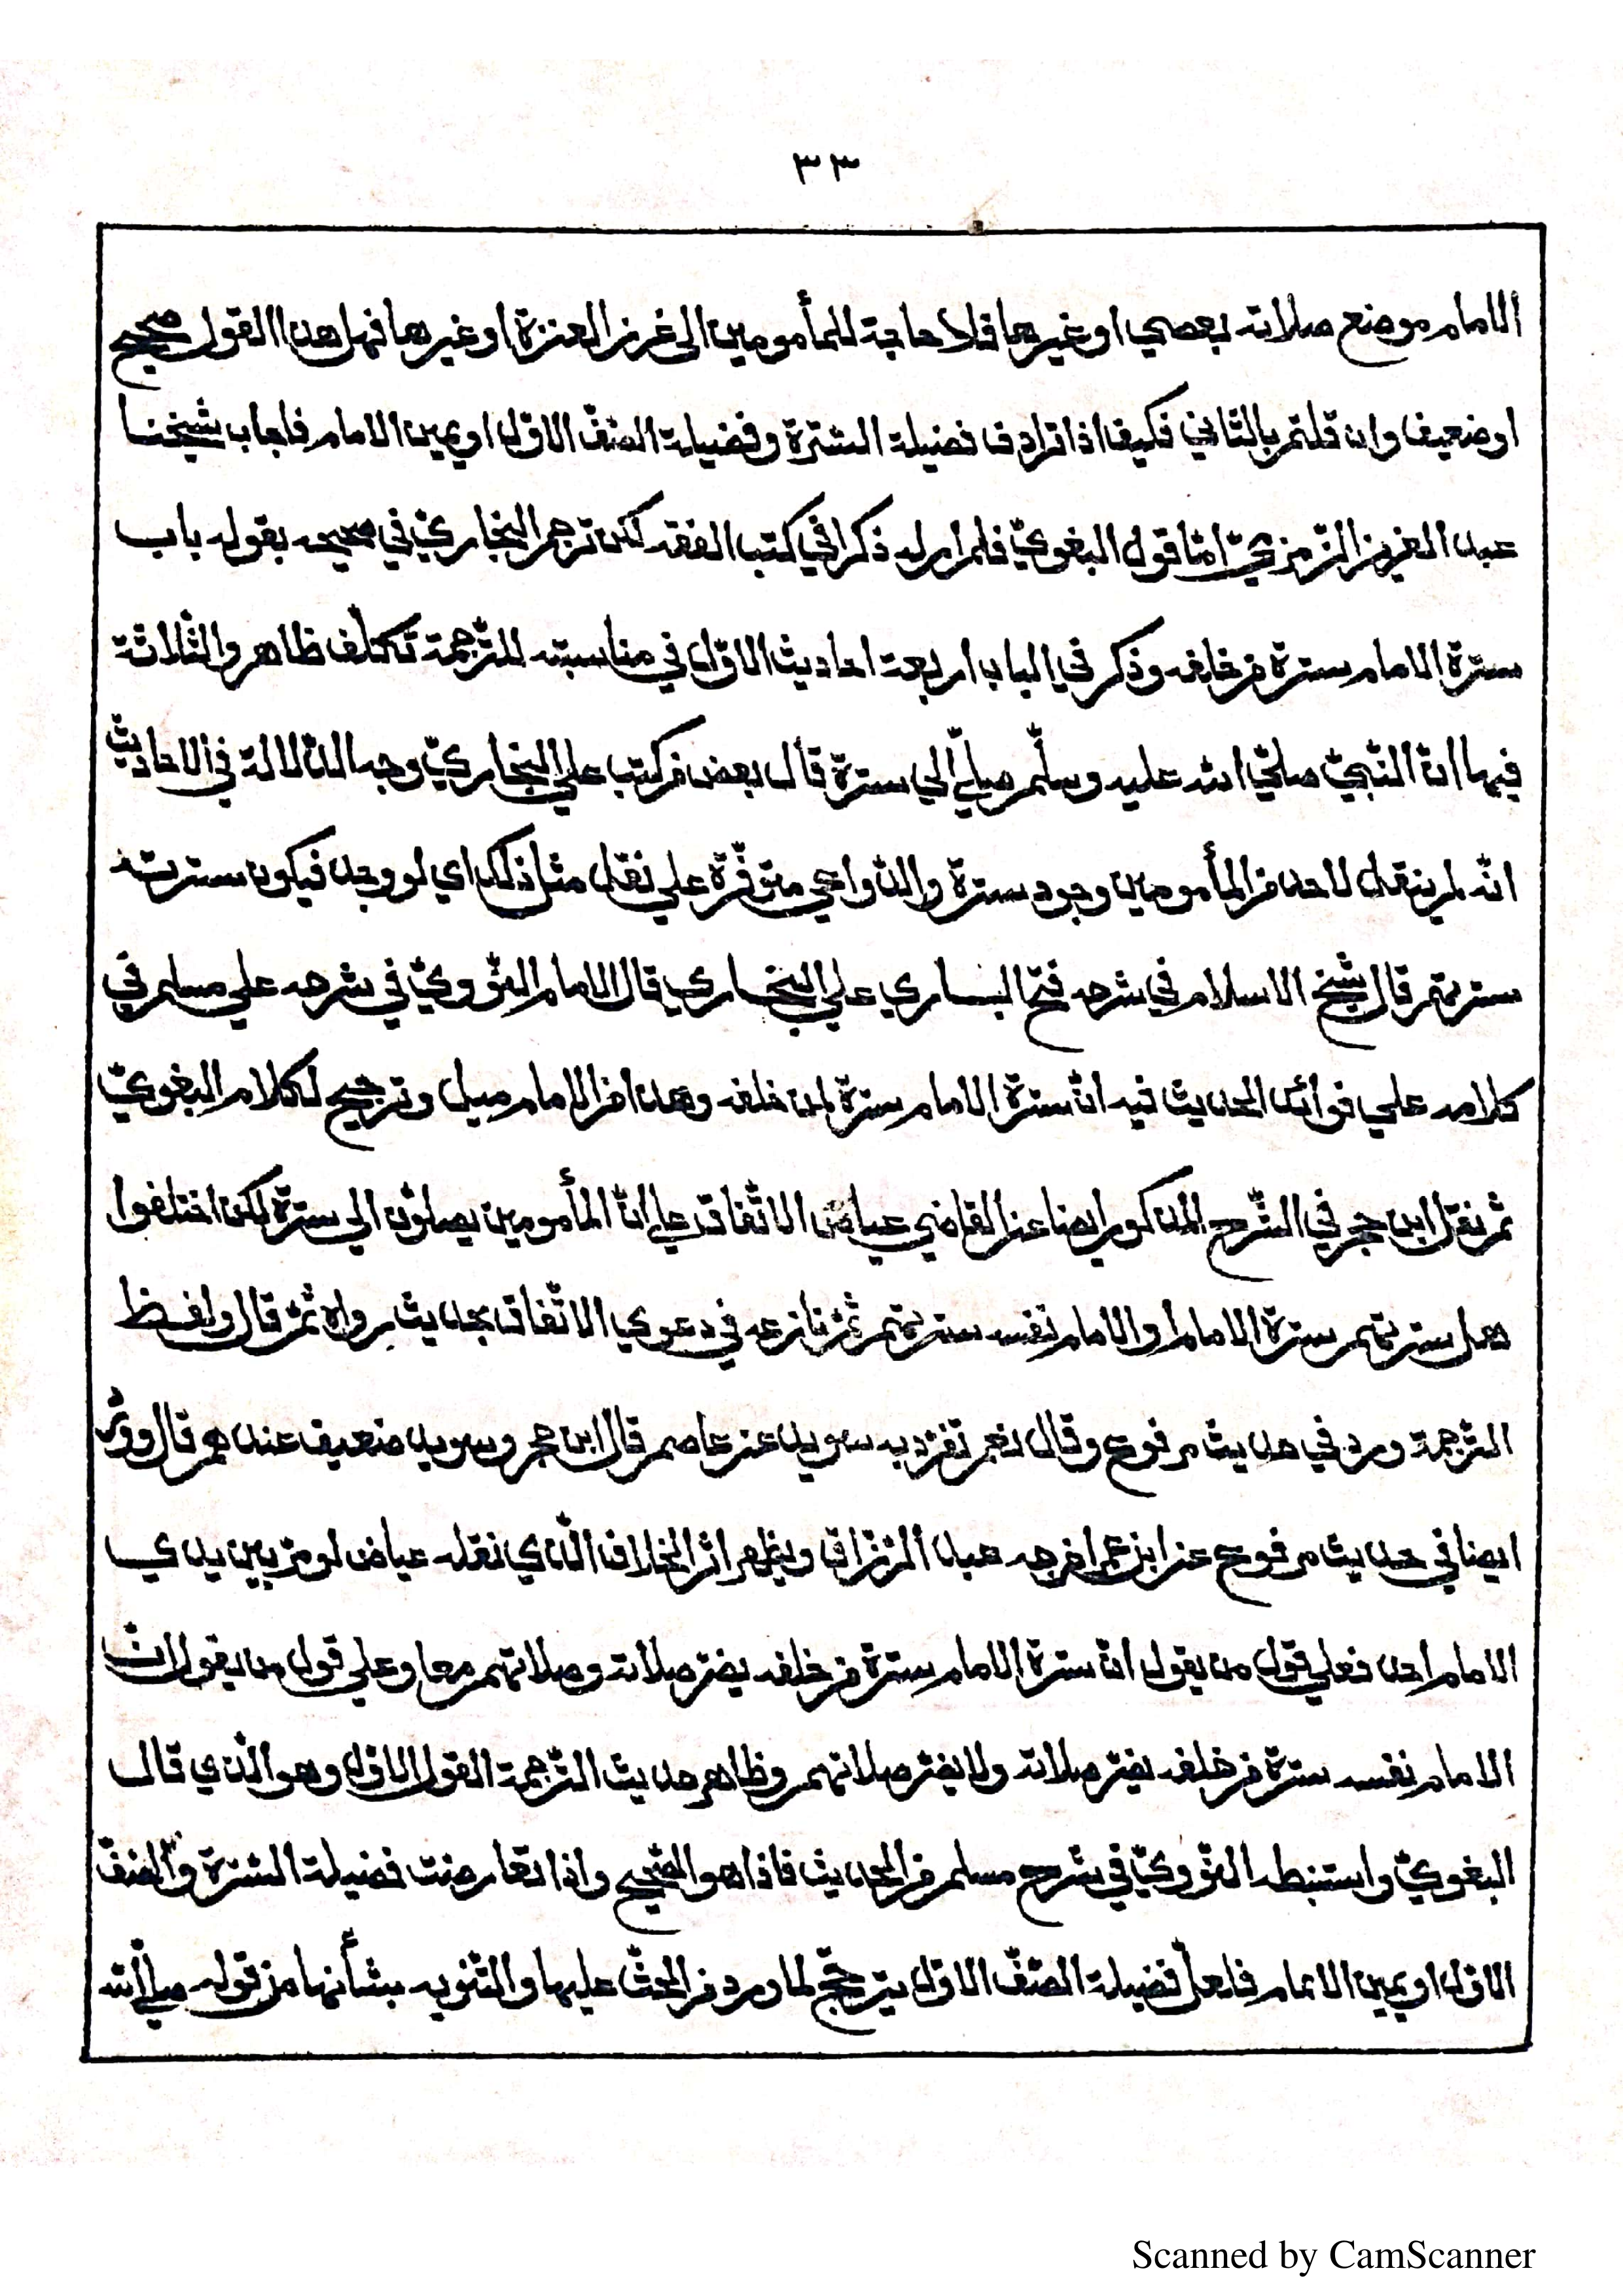 ٣٣
الامام موضع صلاته بعصي او غيرها فلا حاجة للمأمومين الى غرز العنزة او غيرها فهل هذا القول صحيح
او ضعيف وان قلتم بالثاني فكيف اذا ترادف فضيلة السّترة وفضيلة الصّفّ الاوّل او يمين الامام فاجاب شيخنا
عبد العزيز الزّمزميّ امّا قول البغويّ فلم ار له ذكرا في كتب الفقه لكن ترجم البخاريّ في صحيحه بقوله باب
سترة الامام سترة من خلفه وذكر في الباب اربعة احاديث الاوّل في مناسبته للتّرجمة تكلّف ظاهر والثّلاثة
فيها انّ النّبيّ صلّي الله عليه وسلّم صلّي الي سترة قال بعض من كتب علي البخاريّ وجه الدّلالة في الاحاديث
انّه لم ينقل لاحد من المأمومين وجود سترة والدّواعي متوفّرة علي نقل مثل ذلك اي لو وجد فيكون سترته
سترتهم قال شيخ الاسلام في شرحه فتح الباري علي البخاري قال الامام النّوويّ في شرحه علي مسلم في
كلامه علي فوائد الحديث فيه انّ سترة الامام سترة لمن خلفه وهذا من الامام ميل وترجيح لكلام البغويّ
ثم نقل ابن حجر في الشّرح المذكور ايضا عن القاضي عياض الاتّفاق علي انّ المأمومين يصلّون الي سترة لكن اختلفوا
هل سترتهم سترة الامام او الامام نفسه سترتهم ثمّ نازعه في دعوي الاتّفاق بحديث رواه ثمّ قال ولفظ
التّرجمة ورد في حديث مرفوع وقال نعم تفرّد به سويد عن عاصم قال ابن حجر وسويد ضعيف عندهم قال وورد
ايضا في حديث مرفوع عن ابن عمر اخرجه عبد الرّزّاق ويظهر اثر الخلاف الّذي نقله عياض لو مرّ بين يدي
الامام احد فعلي قول من يقول انّ سترة الامام سترة من خلفه يضرّ صلاته وصلاتهم معا وعلي قول من يقول انّ
الامام نفسه سترة من خلفه يضرّ صلاته ولا يضرّ صلاتهم وظاهر حديث التّرجمة القول الاوّل وهو الّذي قال
البغويّ واستنبطه النّوويّ في شرح مسلم من الحديث فاذا هو الصّحيح واذا تعارضت فضيلة السّترة والصّفّ
الاوّل او يمين الامام فلعلّ فضيلة الصّفّ الاوّل يترجّح لما ورد من الحثّ عليها والتّنويه بشأنها من قوله صلّي الله
Scanned by CamScanner